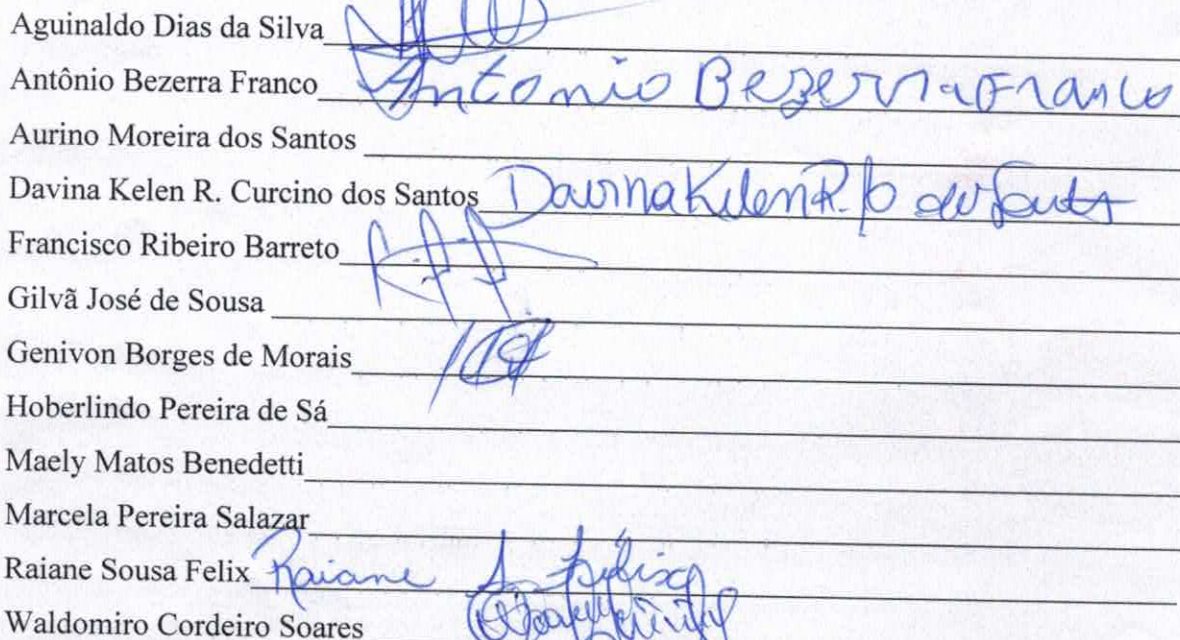 Aguinaldo Dias da Silva
Antônio Bezerra Franco Antonio Bezerra Franco
Aurino Moreira dos Santos
Davina Kelen R. Curcino dos Santos Davina Kelen R.
Francisco Ribeiro Barreto
Gilvã José de Sousa
Genivon Borges de Morais
Hoberlindo Pereira de Sá
Maely Matos Benedetti
Marcela Pereira Salazar
Raiane Sousa Felix Raiane S. Felix
Waldomiro Cordeiro Soares